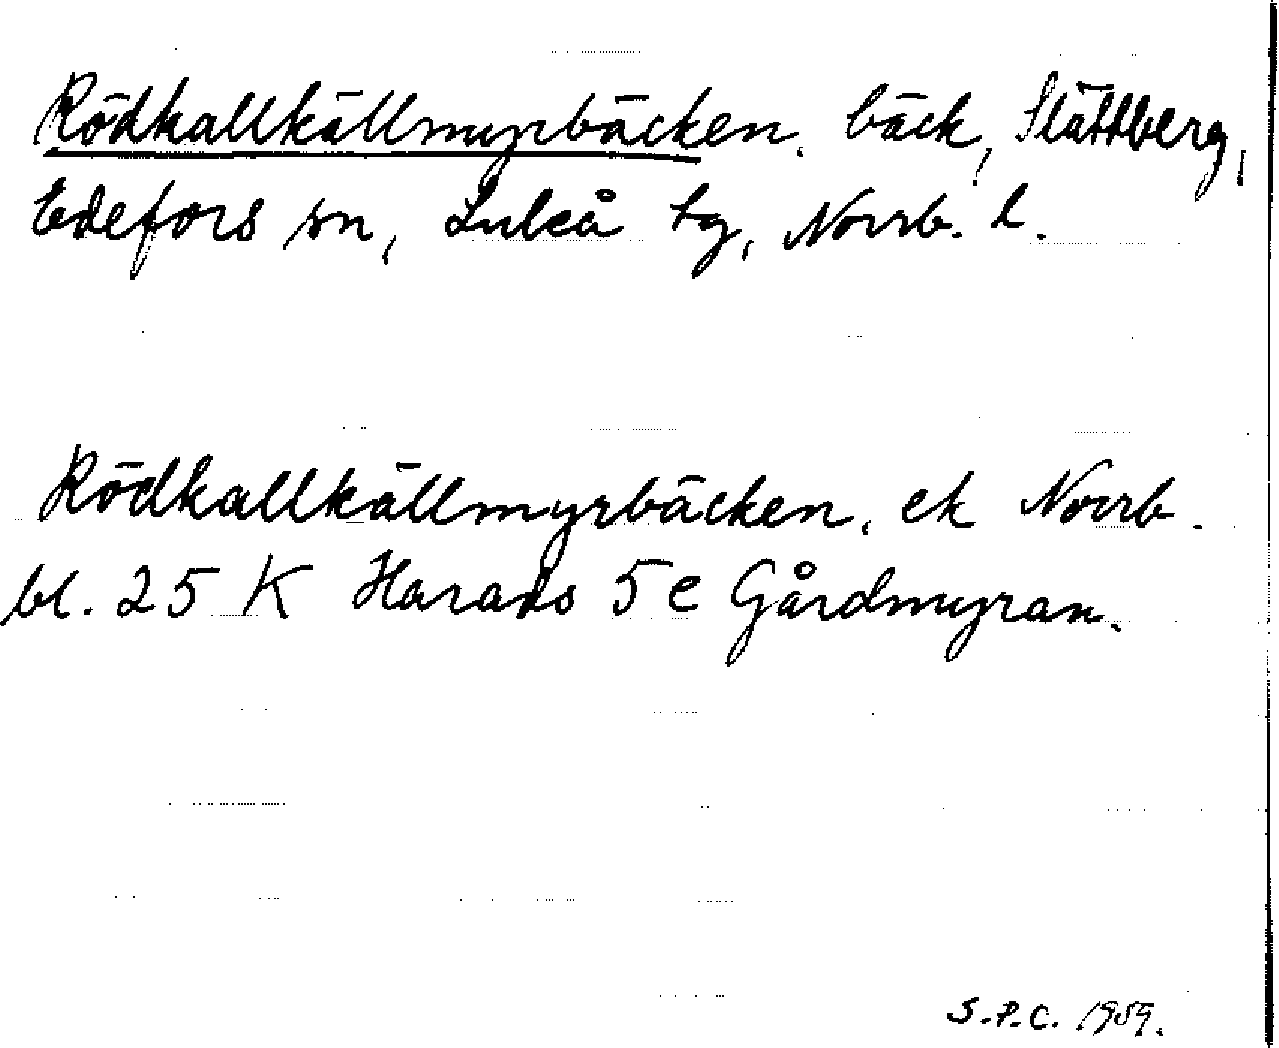 Rödkallkällmyrbäcken, bäck, Slättberg,
Edefors sn, Luleå tg, Norrb. l.
Rödkallkällmyrbäcken, ek Norrb.
bl. 25 K Harads 5 e Gårdmyran.
S.P.C. 1959.